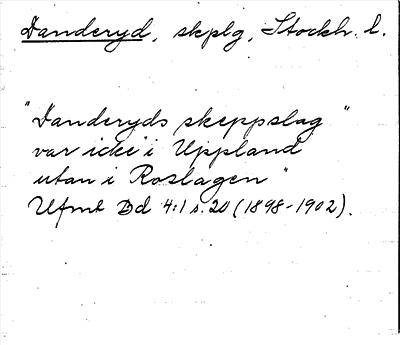 Danderyd, skplg, Stockh. l.
"Danderyds skeppslag"
var icke i Uppland
utan i Roslagen"
Ufmt Dd 4:1 s. 20 (1898-1902).